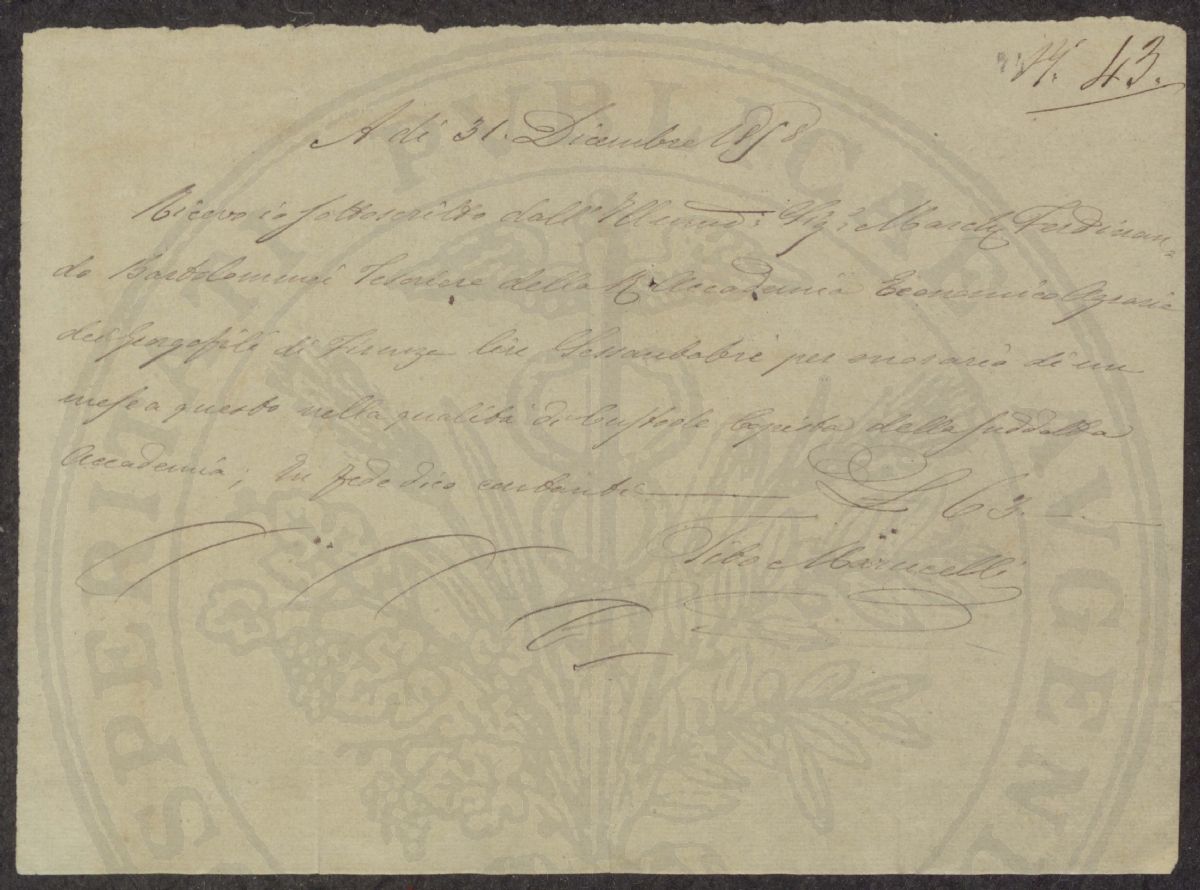 N.° 43.
A di 31. Dicembre 1858
Ricevo io sottoscritto dall' Illmo: Sig.r March. Ferdinan=
do Bartolommei Tesoriere della R. Accademia Economico Agraria
dei Georgofili di Firenze lire Sessantatre per onorario di un
mese a questo nella qualità di Custode Copista della suddetta
Accademia; In fede dico contanti £ 63.
Tito Marucelli
PROSPERITATI PVBLICAE AVGENDAE